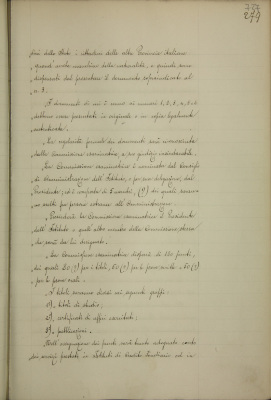 279
dello Stato i cittadini delle altre Provincie italiane
quand'anche mancino della naturalità, e quindi sono
dispensati dal presentare il documento
n. 3.
I documenti di cui è cenno ai numeri 1, 2, 3, 4, 5, 6
debbono essere presentati in originale o in copia legalmente
autenticata.
La regolarità formale dei documenti sarà riconosciuta
dalla Commissione esaminatrice, a suo giudizio insindacabile.
La Commissione esaminatrice è nominata dal Consiglio
di Amministrazione dell'Istituto, o per sua delegazione, dal
Presidente, ed è composta di 5 membri, (?) dei quali
scelti fra persone estranee all'Amministrazione.
Presiederà la Commissione esaminatrice il Presidente
dell'Istituto o quell'altro membro della Commissione stessa
che sarà da lui designato.
La Commissione esaminatrice dispone di 150 punti,
dei quali 50 (?) per i titoli, 50 (?) per le prove scritte e 50 (?)
per la prova orale.
I titoli saranno divisi nei seguenti gruppi:
1°) titoli di studio;
2°) certificati di uffici coperti;
3°) pubblicazioni.
Nell'assegnazione dei punti sarà tenuto adeguato conto
dei servizi prestati in Istituti di Credito Fondiario ed in